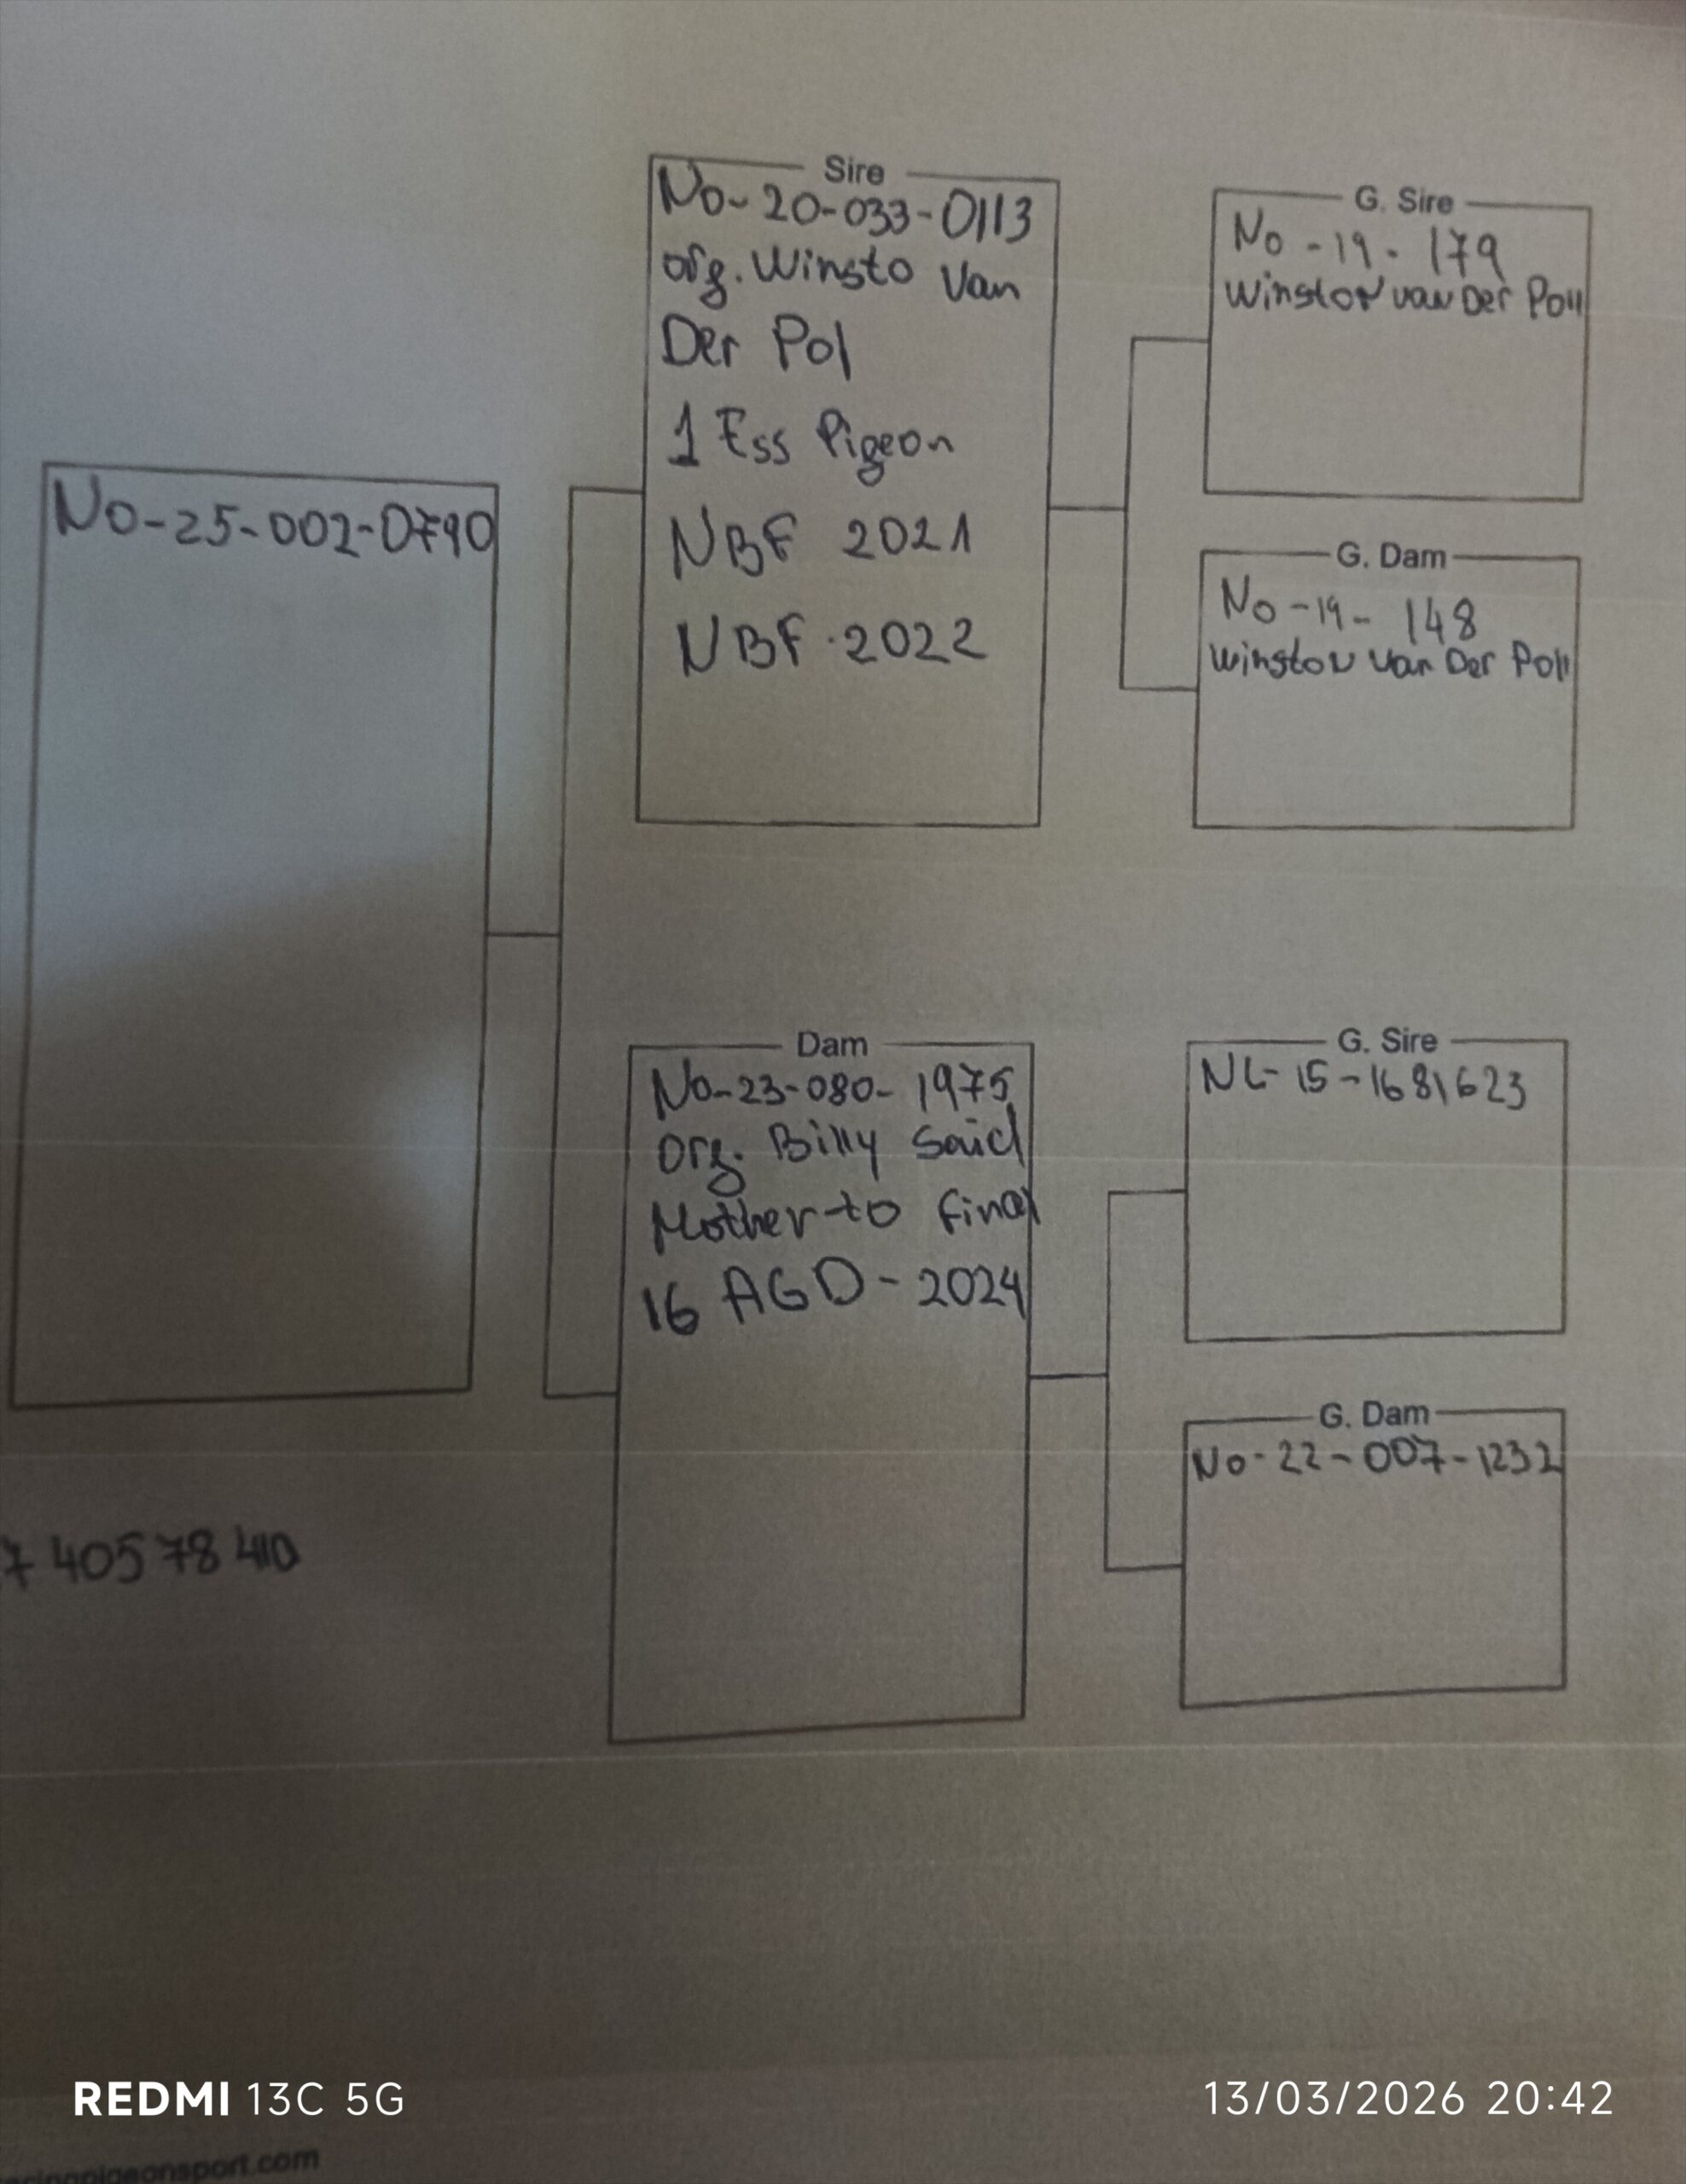 No-25-002-0790
Sire
No-20-033-0113
org. Winsto Van
Der Pol
1 Ess Pigeon
NBF 2021
NBF 2022
G. Sire
No-19-179
Winston van Der Poll
G. Dam
No-19-148
Winston van Der Poll
Dam
No-23-080-1975
Org. Billy Said
Mother to final
16 AGD-2024
G. Sire
NL-15-1681623
G. Dam
No-22-007-1232
7 40578410
REDMI 13C 5G
13/03/2026 20:42
cingpigeonsport.com